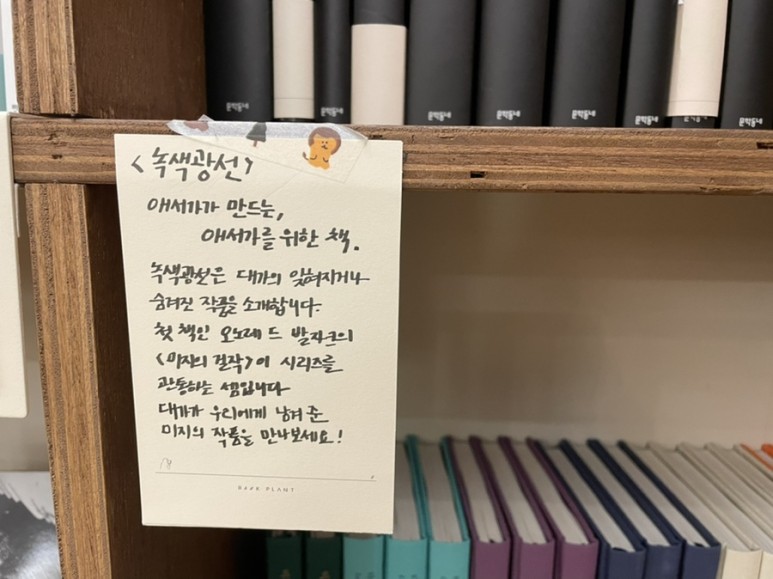 문학동네
문학동네
문학동네
문학동네
문학동네
문학동네
문학동네
문학동네
<녹색광선>
애서가가 만드는,
애서가를 위한 책.
녹색광선은 대가의 잊혀지거나
숨겨진 작품을 소개합니다.
첫 책인 오노레 드 발자크의
<미지의 걸작>이 시리즈를
관통하는 셈입니다
대가가 우리에게 남겨 준
미지의 작품을 만나보세요!
BOOK PLANT